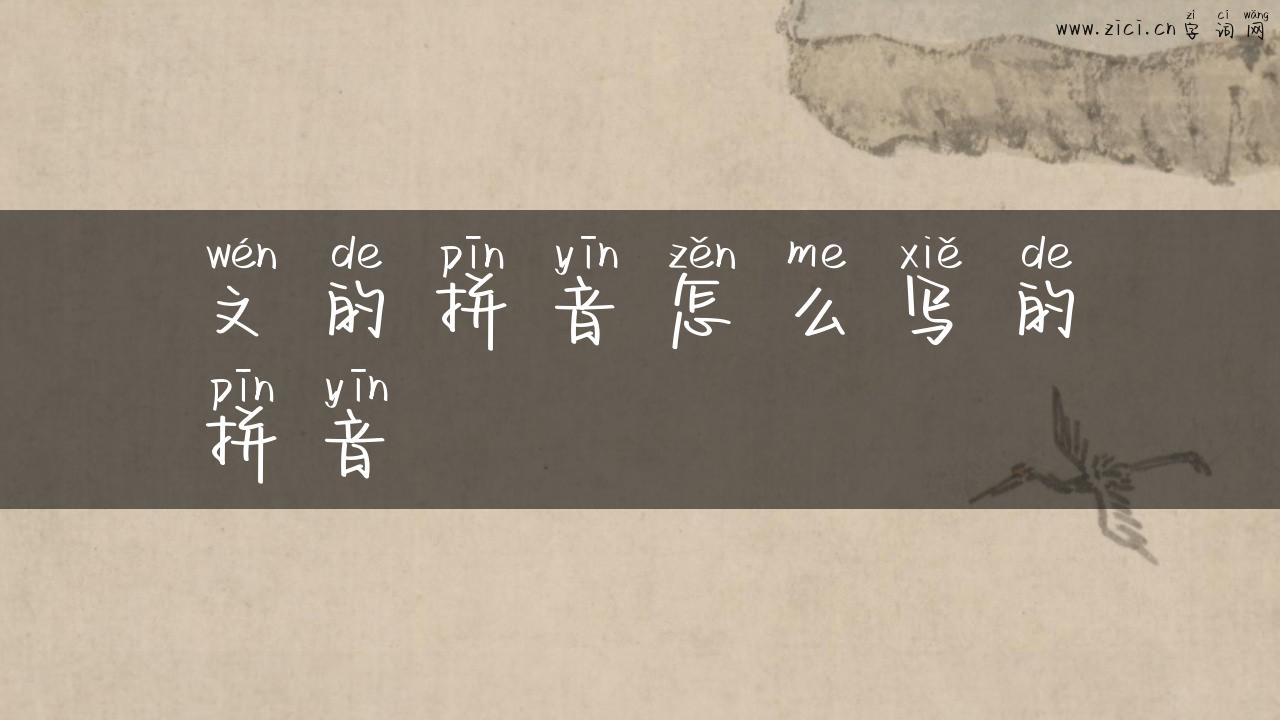 zì cí wǎng
www.zici.cn 字 词 网
wén de pīn yīn zěn me xiě de
文 的 拼 音 怎 么 写 的
pīn yīn
拼 音